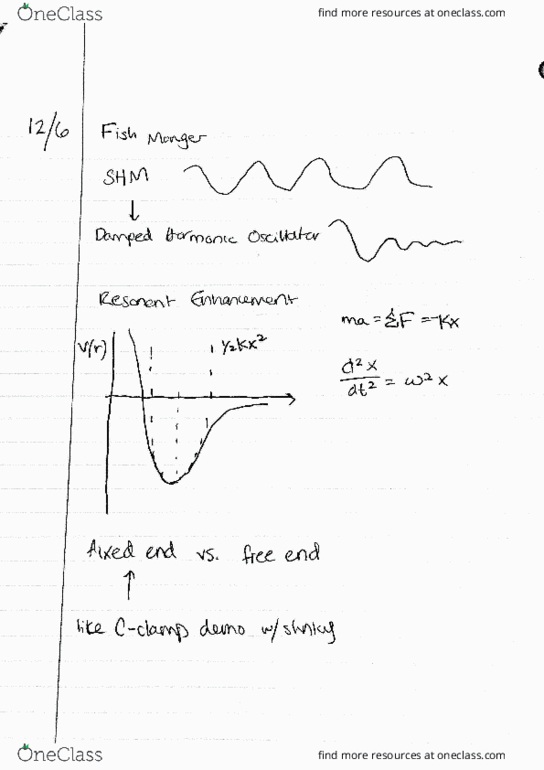 OneClass
find more resources at oneclass.com
12/6
Fish Monger
SHM
↓
Damped Harmonic Oscillator
Resonent Enhancement
ma = ΣF = -Kx
V(r)
½Kx²
d²x/dt² = ω²x
fixed end vs. free end
↑
like C-clamp demo w/ slinky
OneClass
find more resources at oneclass.com